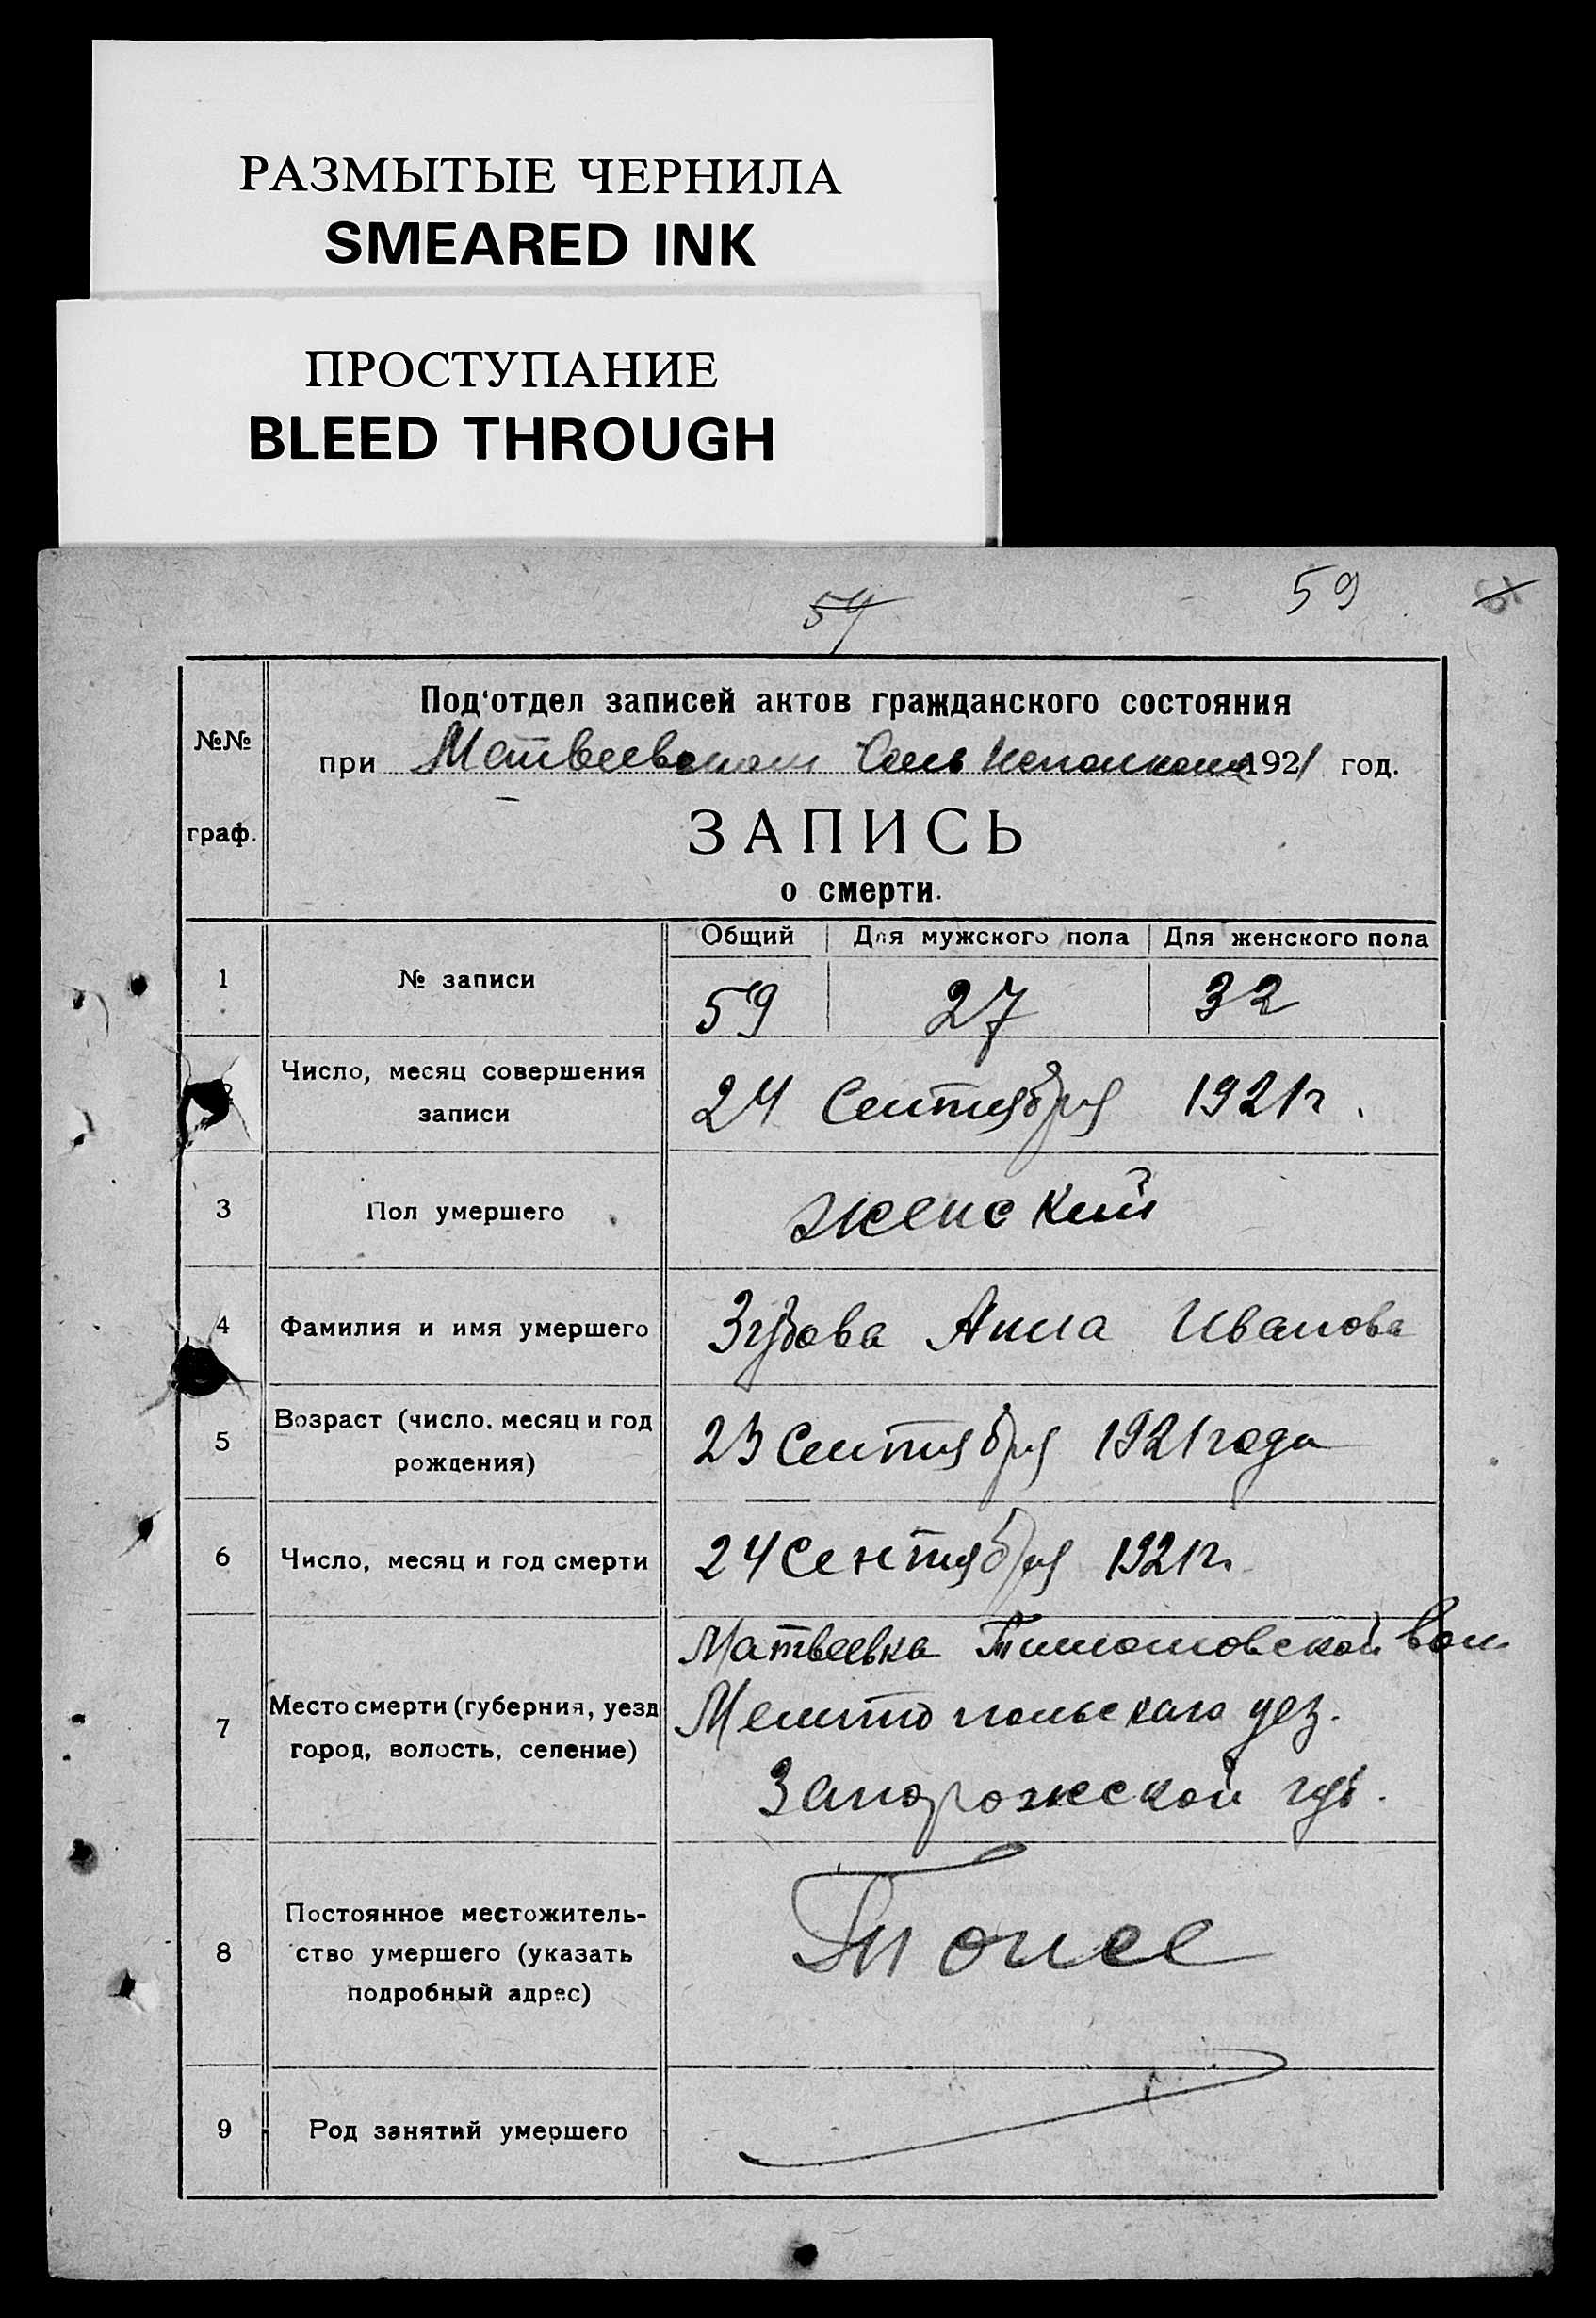 РАЗМЫТЫЕ ЧЕРНИЛА
SMEARED INK
ПРОСТУПАНИЕ
BLEED THROUGH
59
59
№№ граф.
Под‘отдел записей актов гражданского состояния
при Матвеевском Сель Исполкоме 1921 год.
ЗАПИСЬ
о смерти.
Общий Для мужского пола Для женского пола
1 № записи 59 27 32
Число, месяц совершения записи 24 Сентября 1921 г.
3 Пол умершего женский
4 Фамилия и имя умершего Зубова Анна Иванова
5 Возраст (число, месяц и год рождения) 23 Сентября 1921 года
6 Число, месяц и год смерти 24 Сентября 1921 г.
7 Место смерти (губерния, уезд город, волость, селение)
Матвеевка Тимошовской вол
Мелитопольского уез.
Запорожской губ.
8 Постоянное местожитель-
ство умершего (указать
подробный адрес)
9 Род занятий умершего